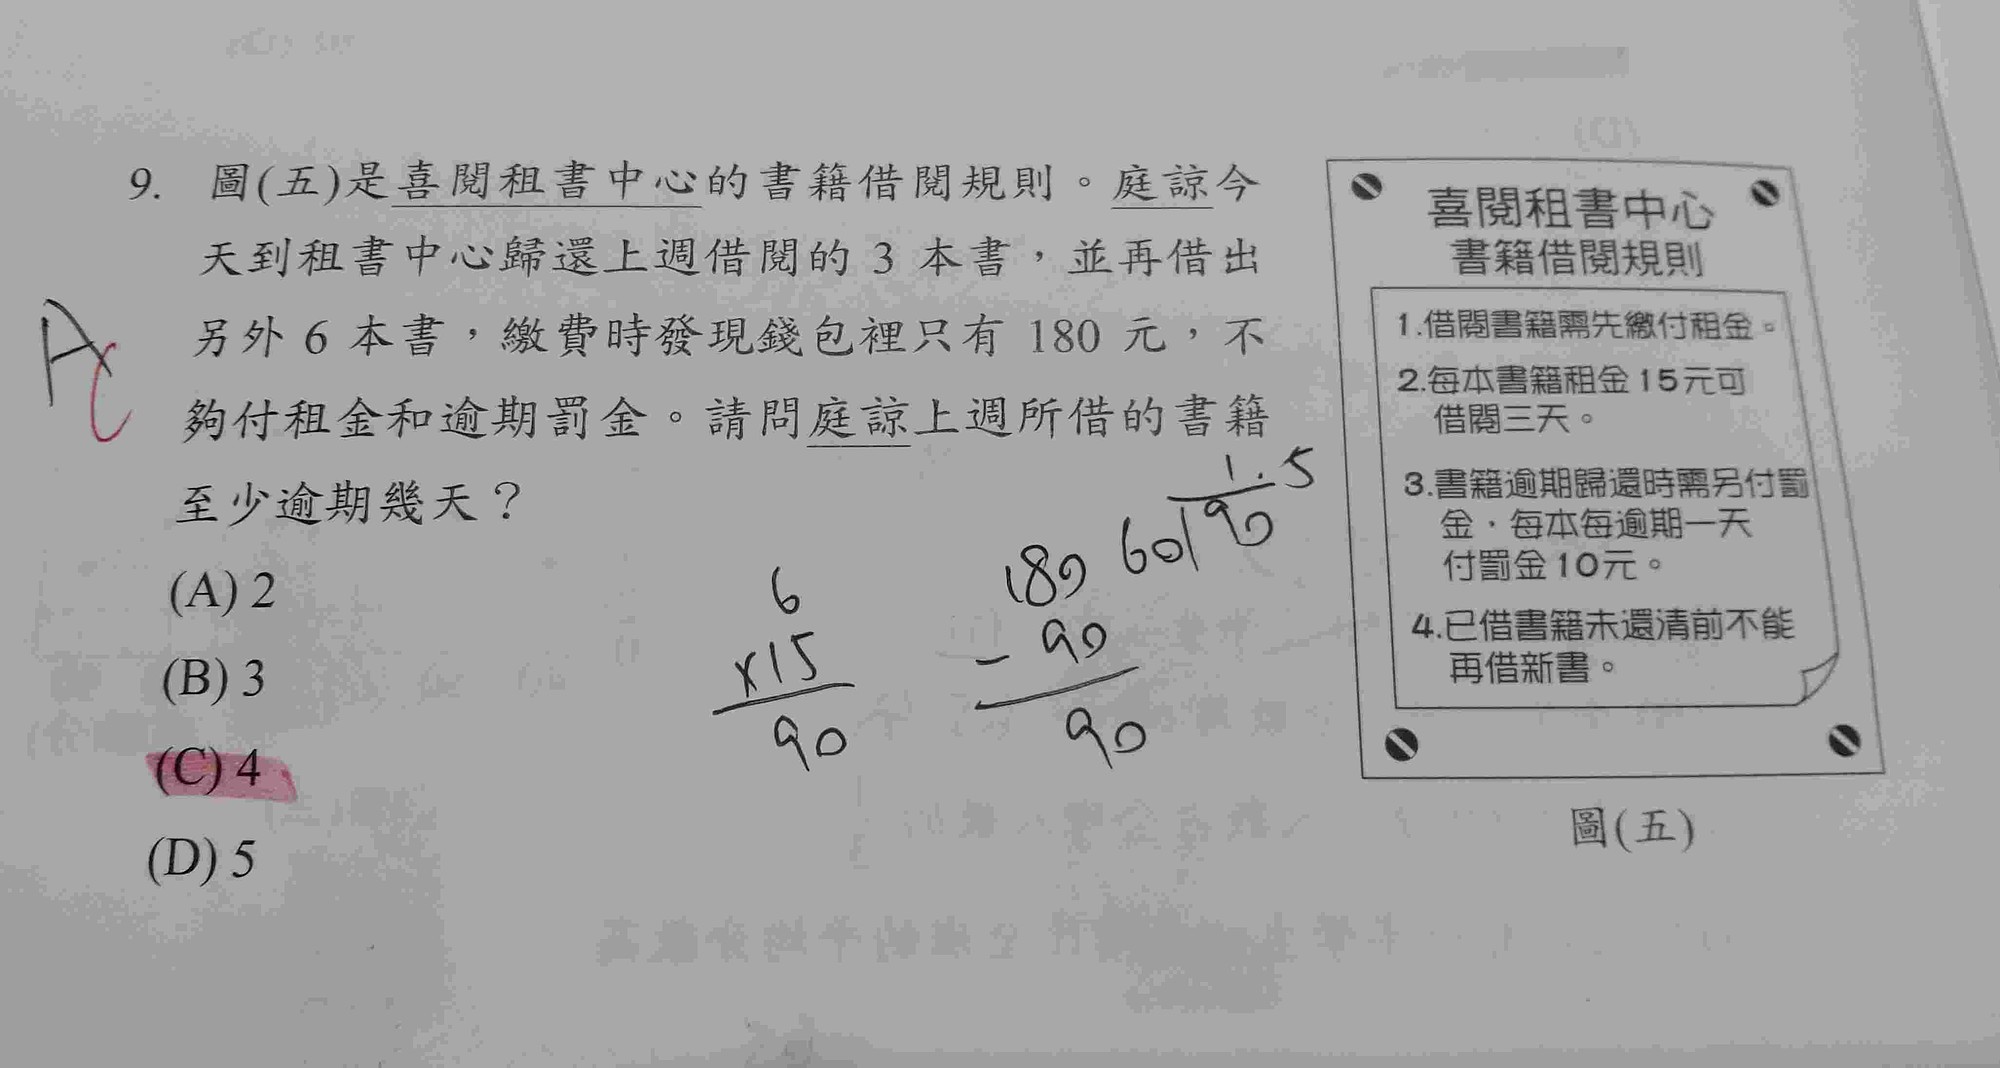 9. 圖(五)是喜閱租書中心的書籍借閱規則。庭諒今
天到租書中心歸還上週借閱的 3 本書，並再借出
另外 6 本書，繳費時發現錢包裡只有 180 元，不
夠付租金和逾期罰金。請問庭諒上週所借的書籍
至少逾期幾天？
(A) 2
(B) 3
(C) 4
(D) 5
A
C
6
×15
90
180
- 90
90
1.5
60 90
喜閱租書中心
書籍借閱規則
1.借閱書籍需先繳付租金。
2.每本書籍租金15元可
借閱三天。
3.書籍逾期歸還時需另付罰
金，每本每逾期一天
付罰金10元。
4.已借書籍未還清前不能
再借新書。
圖(五)